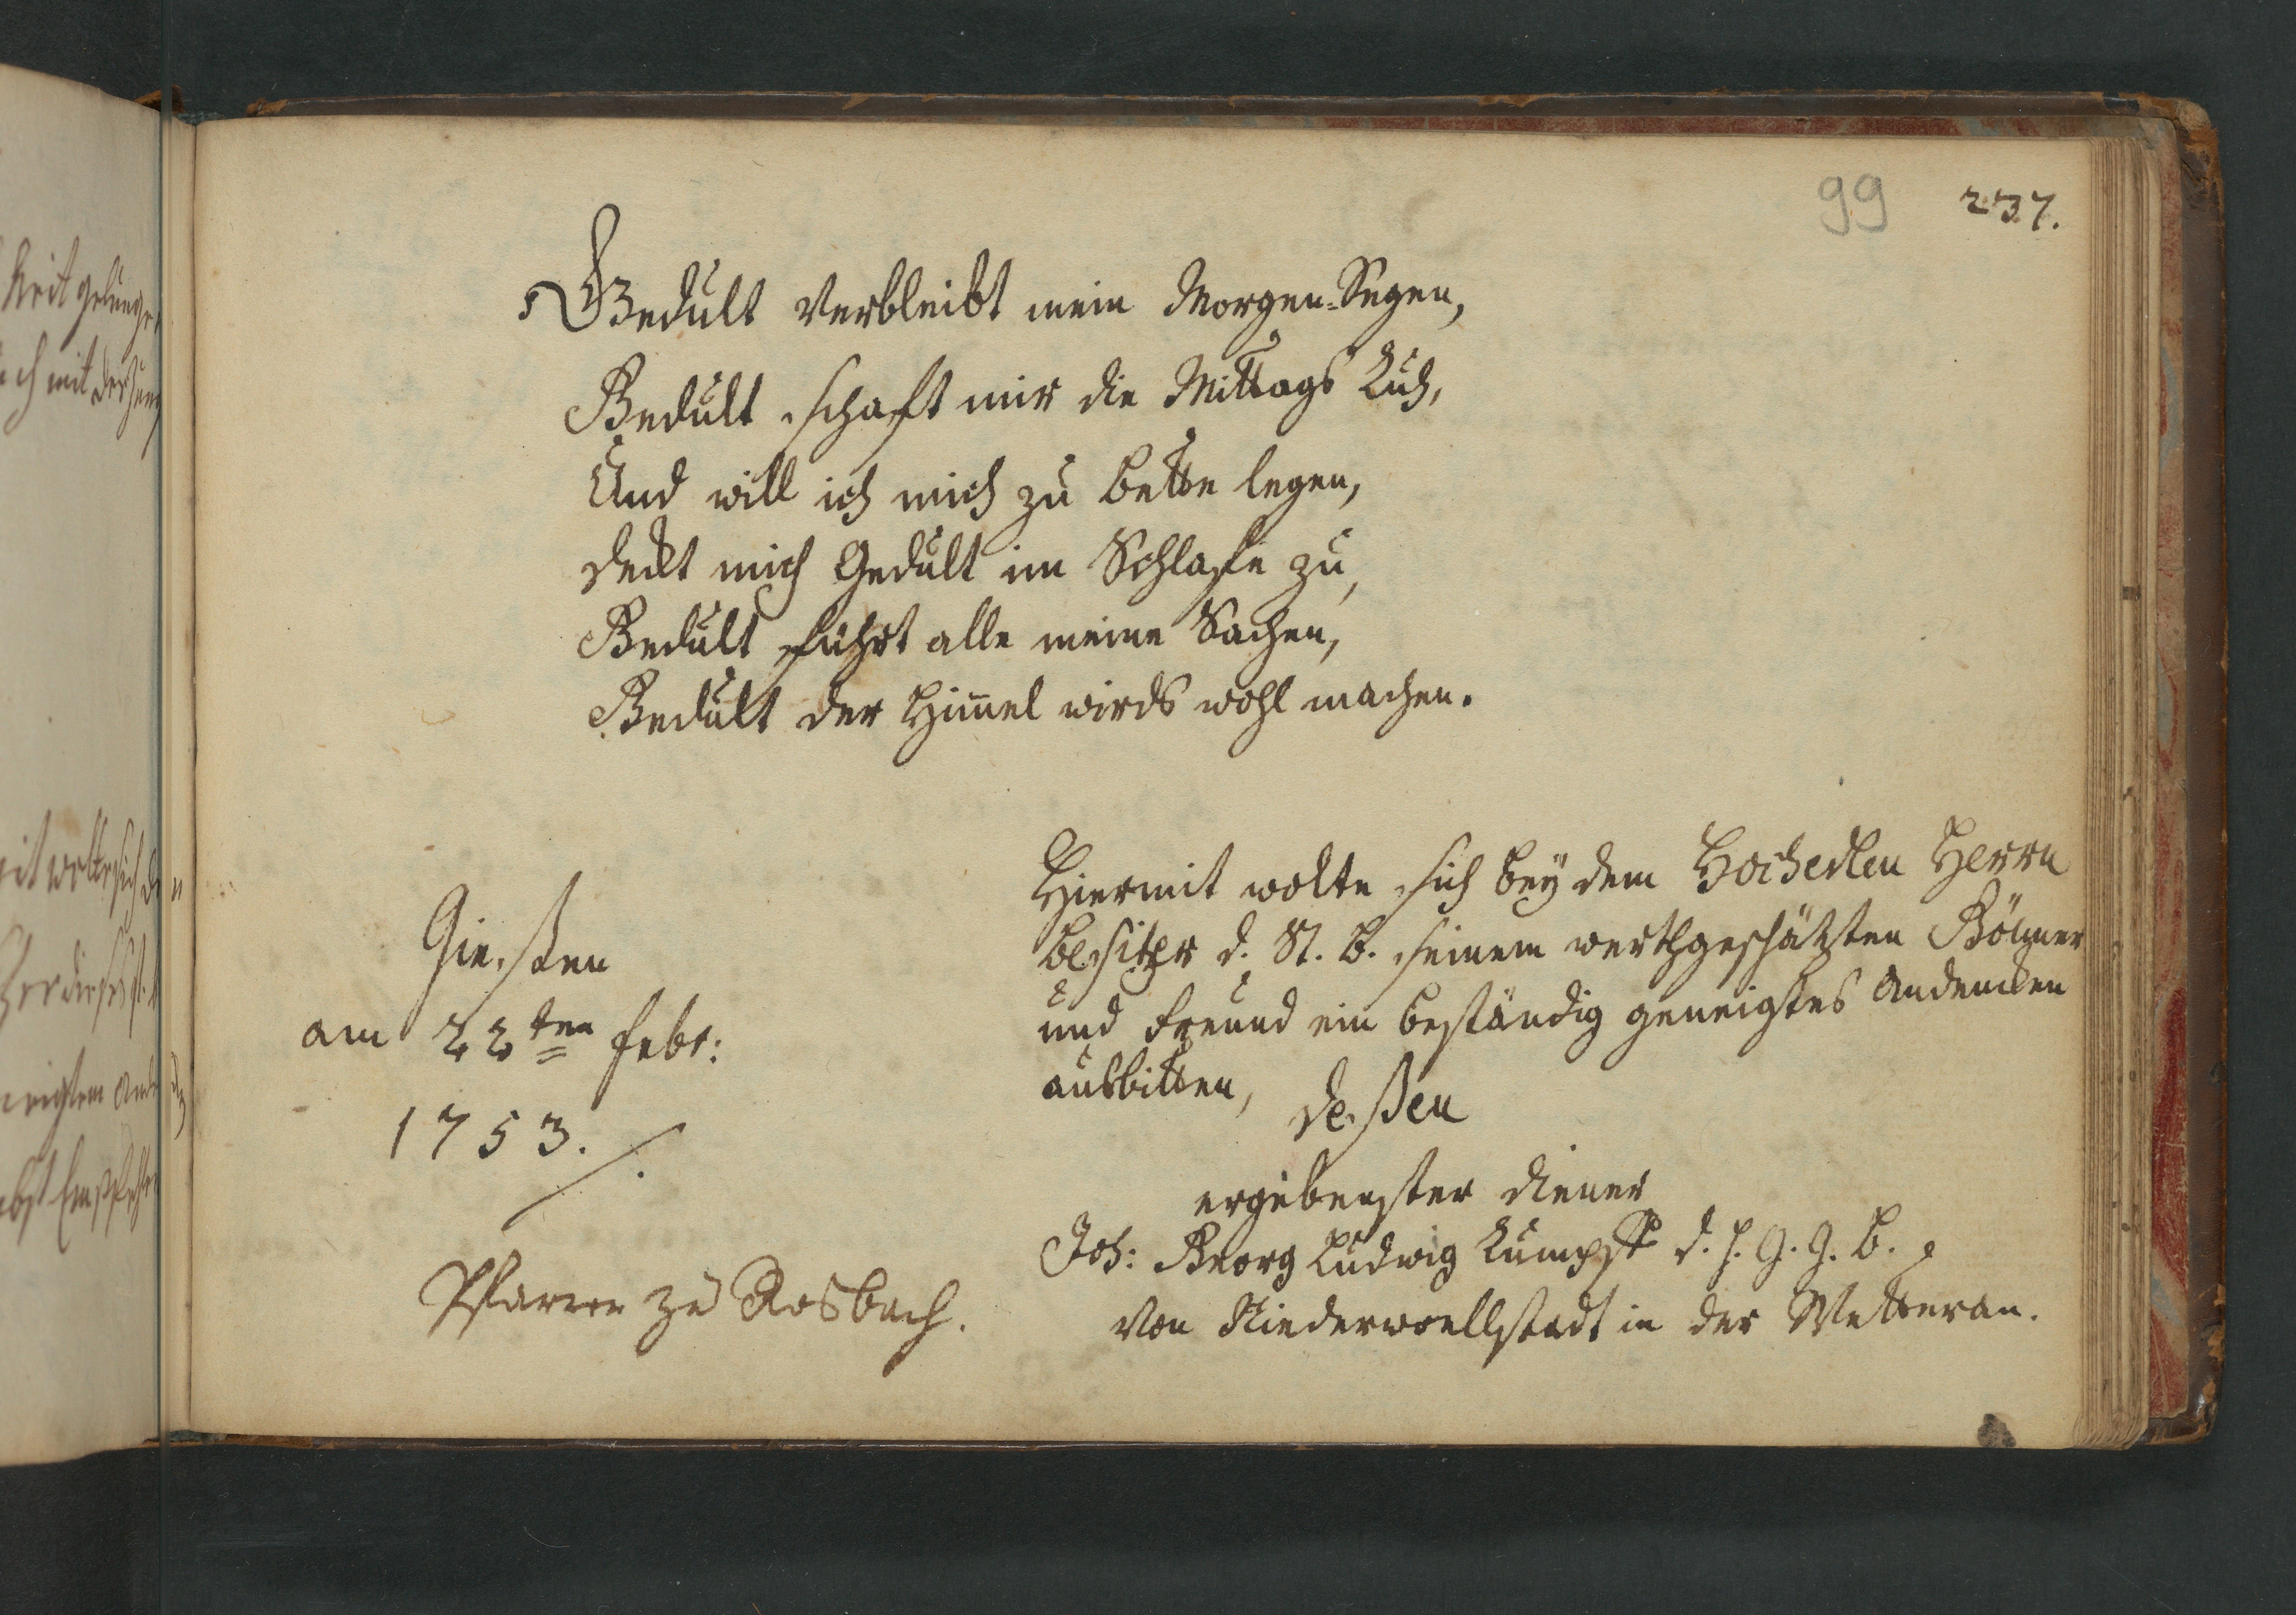 99 237.
Gedult verbleibt mein Morgen-Segen,
Gedult schaft mir die Mittags Ruh,
Und will ich mich zu bette legen,
deckt mich Gedult im Schlafe zu,
Gedult führt alle meine Sachen,
Gedult der Himmel wirds wohl machen.
Gießen
am 22ten Febr:
1753. ./.
Hiermit wolte sich bey dem Hochedlen Herrn
besitzer d. St. B. seinem werthgeschätzten Gönner
und Freund ein beständig geneigtes Andencken
ausbitten, deßen
ergebenster diener
Joh: Georg Ludwig
von Niederwoellstadt in der Wetterau.
Pfarrer zu Rosbach.